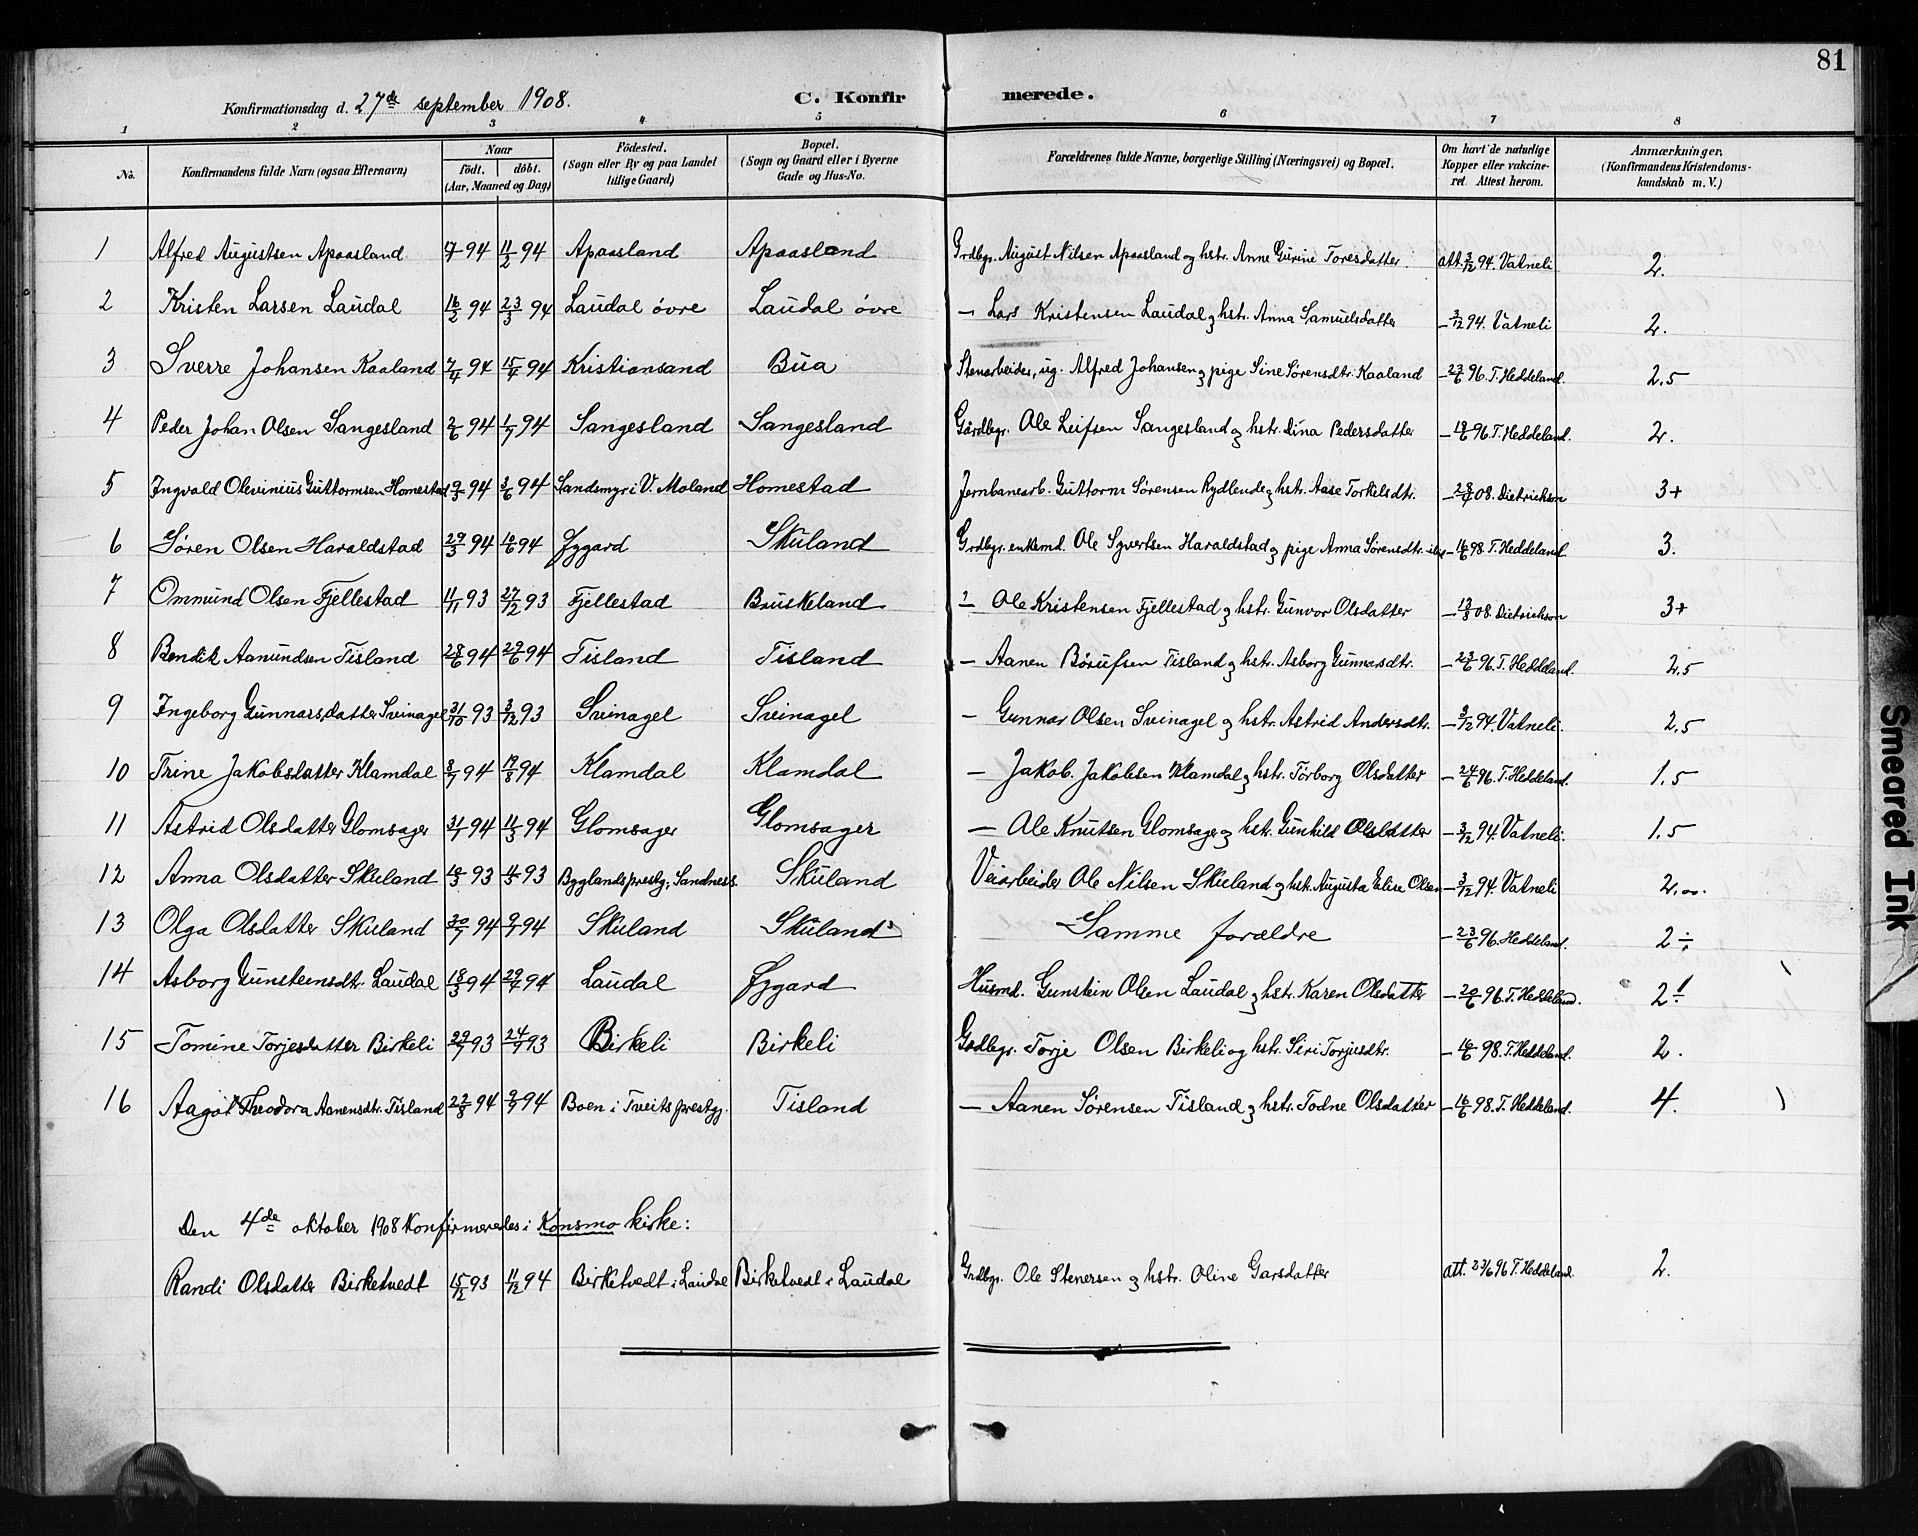 81
Konfirmationsdag d. 27de september 1908. C. Konfirmerede.
1 2 3 4 5 6 7 8
No. Konfirmandens fulde Navn (ogsaa Efternavn) Naar födt. döbt. (Aar, Maaned og Dag) Födested. (Sogn eller By og paa Landet tillige Gaard) Bopæl. (Sogn og Gaard eller i Byerne Gade og Hus-No. Forældrenes fulde Navne, borgerlige Stilling (Næringsvei) og Bopæl. Om havt de naturlige Kopper eller vakcineret. Attest herom. Anmærkninger. (Konfirmandens Kristendomskundskab m. V.)
1 Alfred Augustsen Apaasland 94 11/2 94 Apaasland Apaasland Grdbgr. August Nilsen Apaasland og hstr. Anne Gurine Toresdatter. att. 3/12 94. Vatneli 2.
2 Kristen Larsen Laudal 16/2 94 23/3 94 Laudal övre Laudal övre — Lars Kristensen Laudal og hstr. Anna Samuelsdatter — 3/12 94. Vatneli 2.
3 Sverre Johansen Kaaland 7/4 94 15/4 94 Kristiansand Bua Stenarbeider, ug. Alfred Johansen og pige Sine Sørensdtr. Kaaland — 23/6 96. T. Heddeland. 2.5
4 Peder Johan Olsen Sangesland 2/6 94 1/7 94 Sangesland Sangesland Gårdbgr. Ole Leifsen Sangesland og hstr. Dina Pedersdatter — 18/6 96. T. Heddeland. 2.
5 Ingvald Olevinius Guttormsen Homestad 94 3/6 94 Sandsmyr i V. Moland Homestad Jernbanearb. Guttorm Sørensen Rydlende og hstr. Aase Torkelsdtr. 08. Dietrichson 3+
6 Søren Olsen Haraldstad 29/3 94 10/6 94 Øygard Skuland Grdbgr. enkemd. Ole Syvertsen Haraldstad og pige Anna Sørensdtr. — 16/6 98. T. Heddeland 3.
7 Ommund Olsen Fjellestad 11/11 93 27/12 93 Fjellestad Bruskeland — Ole Kristensen Fjellestad og hstr. Gunvor Olsdatter — 13/8 08. Dietrichson 3+
8 Bendik Aanundsen Tisland 28/6 94 29/6 94 Tisland Tisland — Aanen Børufsen Tisland og hstr. Asborg Gunnarsdtr. — 23/6 96. T. Heddeland. 2.5
9 Ingeborg Gunnarsdatter Sveinagel 31/10 93 3/12 93 Sveinagel Sveinagel — Gunnar Olsen Sveinagel og hstr. Astrid Andersdtr. — 3/12 94. Vatneli. 2.5
10 Trine Jakobsdatter Klamdal 8/7 94 19/8 94 Klamdal Klamdal — Jakob Jakobsen Klamdal og hstr. Torborg Olsdatter — 24/6 96. T. Heddeland. 1.5
11 Astrid Olsdatter Glomsager 31/1 94 11/3 94 Glomsager Glomsager — Ole Knutsen Glomsager og hstr. Gunhild Olsdatter — 3/12 94. Vatneli. 1.5
12 Anna Olsdatter Skuland 93 93 Byglands prestg., Sandnes Skuland Veiarbeider Ole Nilsen Skuland og hstr. Augusta Elise Olsen — 3/12 94. Vatneli 2.00.
13 Olga Olsdatter Skuland 30/7 94 94 Skuland Skuland Samme forældre — 23/6 96. Heddeland. 2÷
14 Asborg Gunsteensdtr. Laudal 18/3 94 29/4 94 Laudal Øygard Husmd. Gunstein Olsen Laudal og hstr. Karen Olsdatter — 20/6 96. T. Heddeland. 2
15 Tomine Torjesdatter Birkeli 93 93 Birkeli Birkeli Grdbgr. Torje Olsen Birkeli og hstr. Siri Torjusdtr. — 16/6 98. T. Heddeland. 2.
16 Aagot Theodora Aanensdtr. Tisland 22/8 94 9/9 94 Boen i Tveits prestgj. Tisland — Aanen Sørensen Tisland og hstr. Todne Olsdatter — 16/6 98. T. Heddeland. 4.
Den 4de oktober 1908 Konfirmeredes i Konsmo kirke:
Randi Olsdatter Birketvedt 15/12 93 11/2 94 Birketvedt i Laudal Birketvedt i Laudal Grdbgr. Ole Stenersen og hstr. Oline Garsdatter att. 23/6 96 T. Heddeland 2.
Smeared Ink